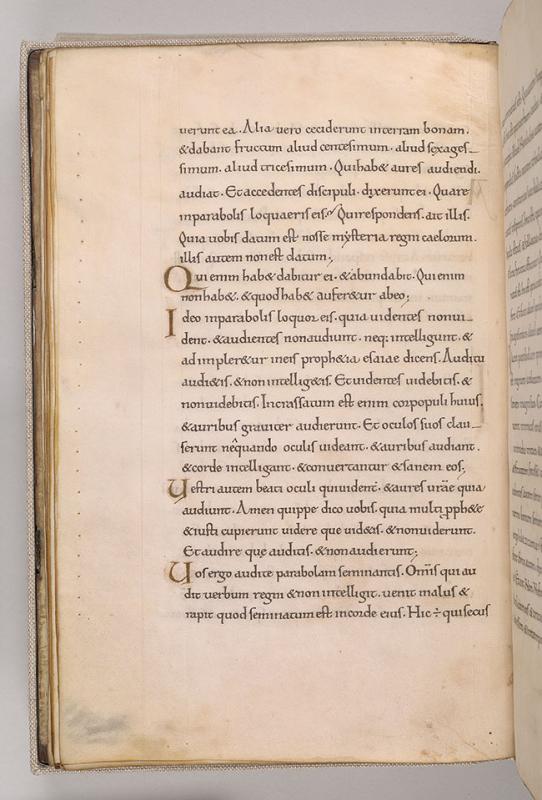 uerunt ea. Alia uero ceciderunt in terram bonam.
& dabant fructum aliud centesimum. aliud sexages
simum. aliud tricesimum. Qui hab& aures audiendi.
audiat. Et accedentes discipuli. dixerunt ei. Quare
in parabolis loquaeris eis? Qui respondens. ait illis.
Quia uobis datum est nosse mysteria regni caelorum.
illis autem non est datum;
Qui enim hab& dabitur ei. & abundabit. Qui enim
non hab&. & quod hab& aufer&ur ab eo;
Ideo in parabolis loquor eis. quia uidentes non ui
dent. & audientes non audiunt. neq: intelligunt. &
adimpler&ur in eis proph&ia esaiae dicens. Auditu
audi&is. & non intellig&is. Et uidentes uidebitis. &
non uidebitis. Incrassatum est enim cor populi huius.
& auribus grauiter audierunt. Et oculos suos clau
serunt nequando oculis uideant. & auribus audiant.
& corde intelligant. & conuertantur & sanem eos;
Uestri autem beati oculi qui uident. & aures urae quia
audiunt. Amen quippe dico uobis. quia multi pph&e
& iusti cupierunt uidere que uid&is. & non uiderunt.
Et audire que auditis. & non audierunt;
Uos ergo audite parabolam seminantis. Omis qui au
dit uerbum regni & non intelligit. uenit malus &
rapit quod seminatum est in corde eius. Hic ÷ qui secus